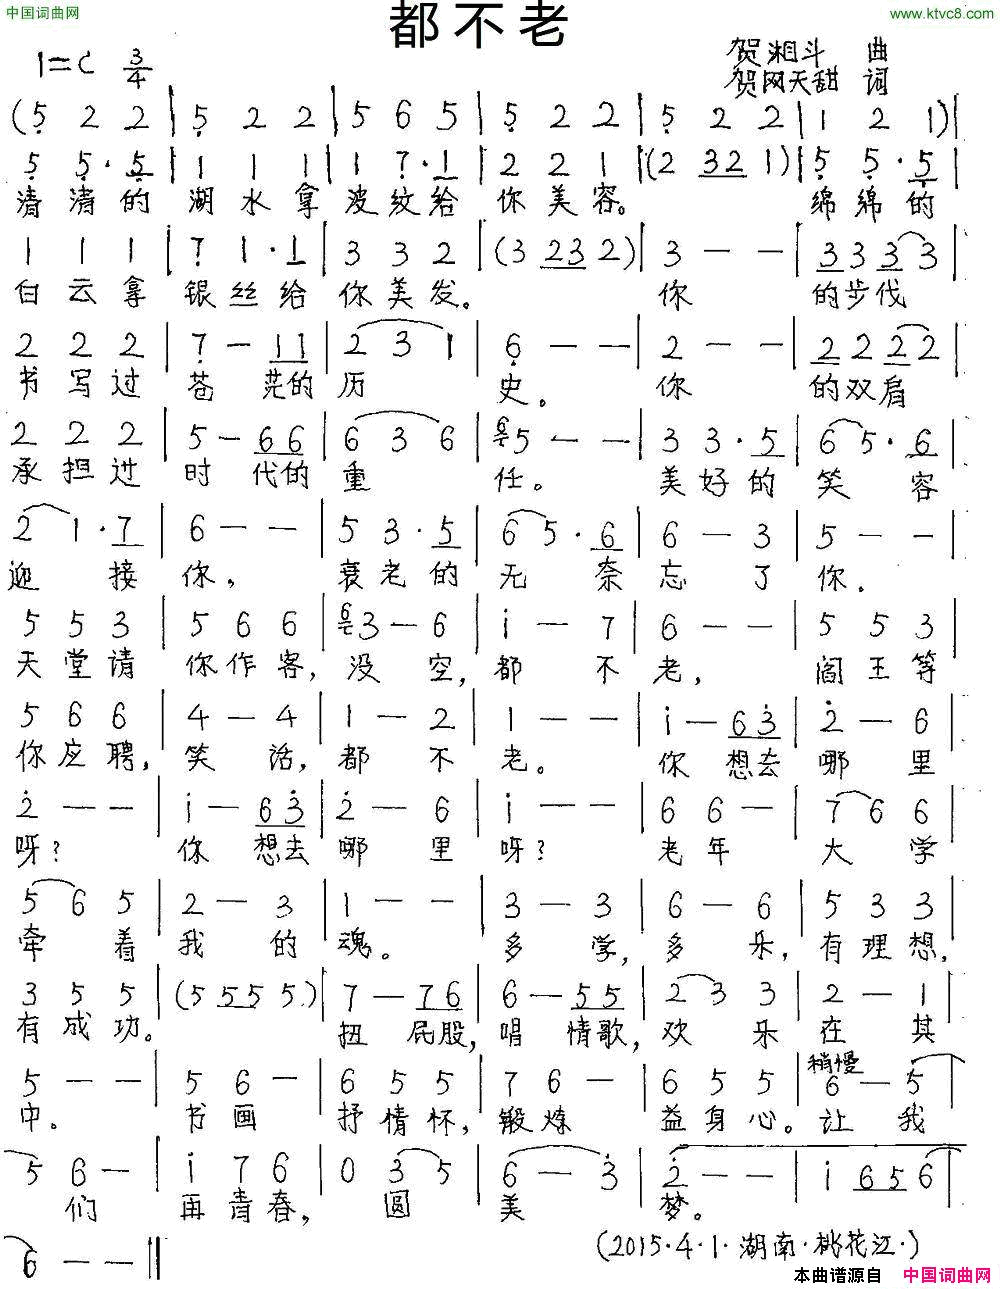 中国词曲网
www.ktvc8.com
都不老
1=C 3/4
贺湘斗 曲
贺网天甜 词
(5 2 2 | 5 2 2 | 5 6 5 | 5 2 2 | 5 2 2 | 1 2 1)|
5 5·5 | 1 1 1 | 1 7·1 | 2 2 1 |(2 32 1)| 5 5·5
清清的 湖水拿 波纹给 你美容。 绵绵的
1 1 1 | 7 1·1 | 3 3 2 |(3 232 2)| 3 — — | 3 3 3 3
白云拿 银丝给 你美发。 你 的步伐
2 2 2 | 7 — 11 | 2 3 1 | 6 — — | 2 — — | 2 2 2 2
书写过 苍茫的 历 史。 你 的双肩
2 2 2 | 5 — 66 | 6 3 6 | 6 5 — — | 3 3·5 | 6 5·6
承担过 时代的 重 任。 美好的 笑容
2 1·7 | 6 — — | 5 3·5 | 6 5·6 | 6 — 3 | 5 — —
迎接 你, 衰老的 无奈 忘了 你.
5 5 3 | 5 6 6 | 6 3 — 6 | i — 7 | 6 — — | 5 5 3
天堂请 你作客, 没空, 都不 老, 阎王等
5 6 6 | 4 — 4 | 1 — 2 | 1 — — | i — 63 | 2 — 6
你应聘, 笑话, 都不 老。 你想去 哪里
2 — — | i — 63 | 2 — 6 | i — — | 6 6 — | 7 6 6
呀? 你想去 哪里 呀? 老年 大学
5 6 5 | 2 — 3 | 1 — — | 3 — 3 | 6 — 6 | 5 3 3
牵着 我的 魂。 多学, 多乐, 有理想,
3 5 5 |(5 555 5.)| 7 — 76 | 6 — 55 | 2 3 3 | 2 — 1
有成功。 扭屁股, 唱情歌, 欢乐 在其
5 — — | 5 6 — | 6 5 5 | 7 6 — | 6 5 5 | 稍慢 6 — 5
中。 书画 抒情怀, 锻炼 益身心。 让我
5 6 — | i 7 6 | 0 3 5 | 6 — 3 | 2 — — | i 656
们 再青春, 圆 美 梦。
6 — — ‖
(2015·4·1·湖南·桃花江·)
本曲谱源自 中国词曲网